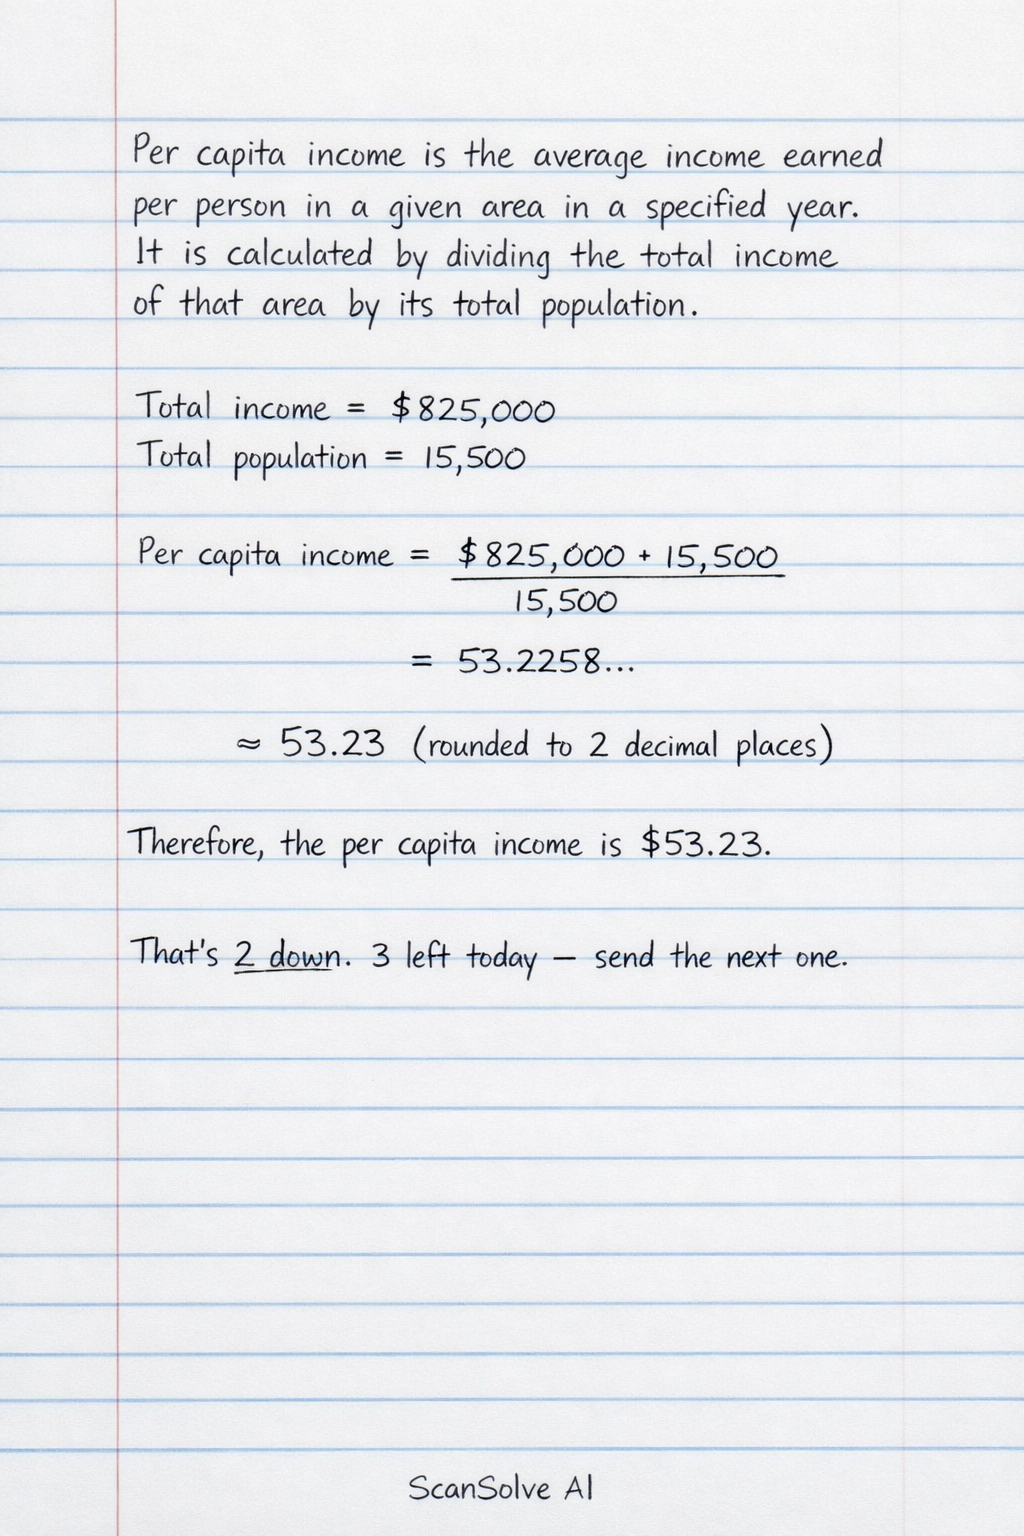 Per capita income is the average income earned
per person in a given area in a specified year.
It is calculated by dividing the total income
of that area by its total population.
Total income = $825,000
Total population = 15,500
Per capita income = $825,000 + 15,500
15,500
= 53.2258...
≈ 53.23 (rounded to 2 decimal places)
Therefore, the per capita income is $53.23.
That's 2 down. 3 left today — send the next one.
ScanSolve AI